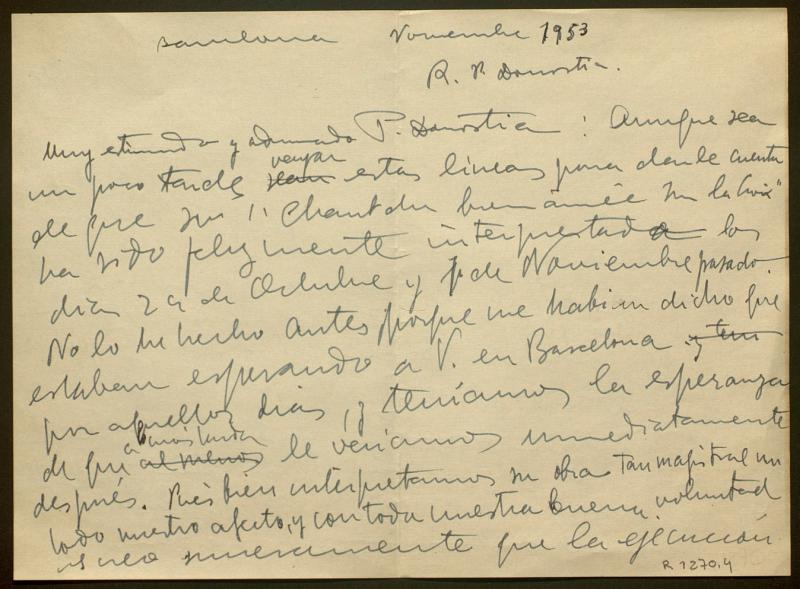 Barcelona Noviembre 1953
R. P. Donostia.
Muy estimado y admirado P. Donostia: Aunque sea
un poco tarde, sean vayan estas líneas para darle cuenta
de que su "Chant du bien aimée sur la Croix"
ha sido felizmente interpretada los
días 29 de Octubre y 1 de Noviembre pasado.
No lo he hecho antes porque me habían dicho que
estaban esperando a V. en Barcelona y tem
por aquellos días, y teníamos la esperanza
de que al menos le veríamos inmediatamente
después. Pues bien interpretamos su obra tan magistral con
todo nuestro afecto, y con toda nuestra buena voluntad
y creo sinceramente que la ejecución
R 1270.4